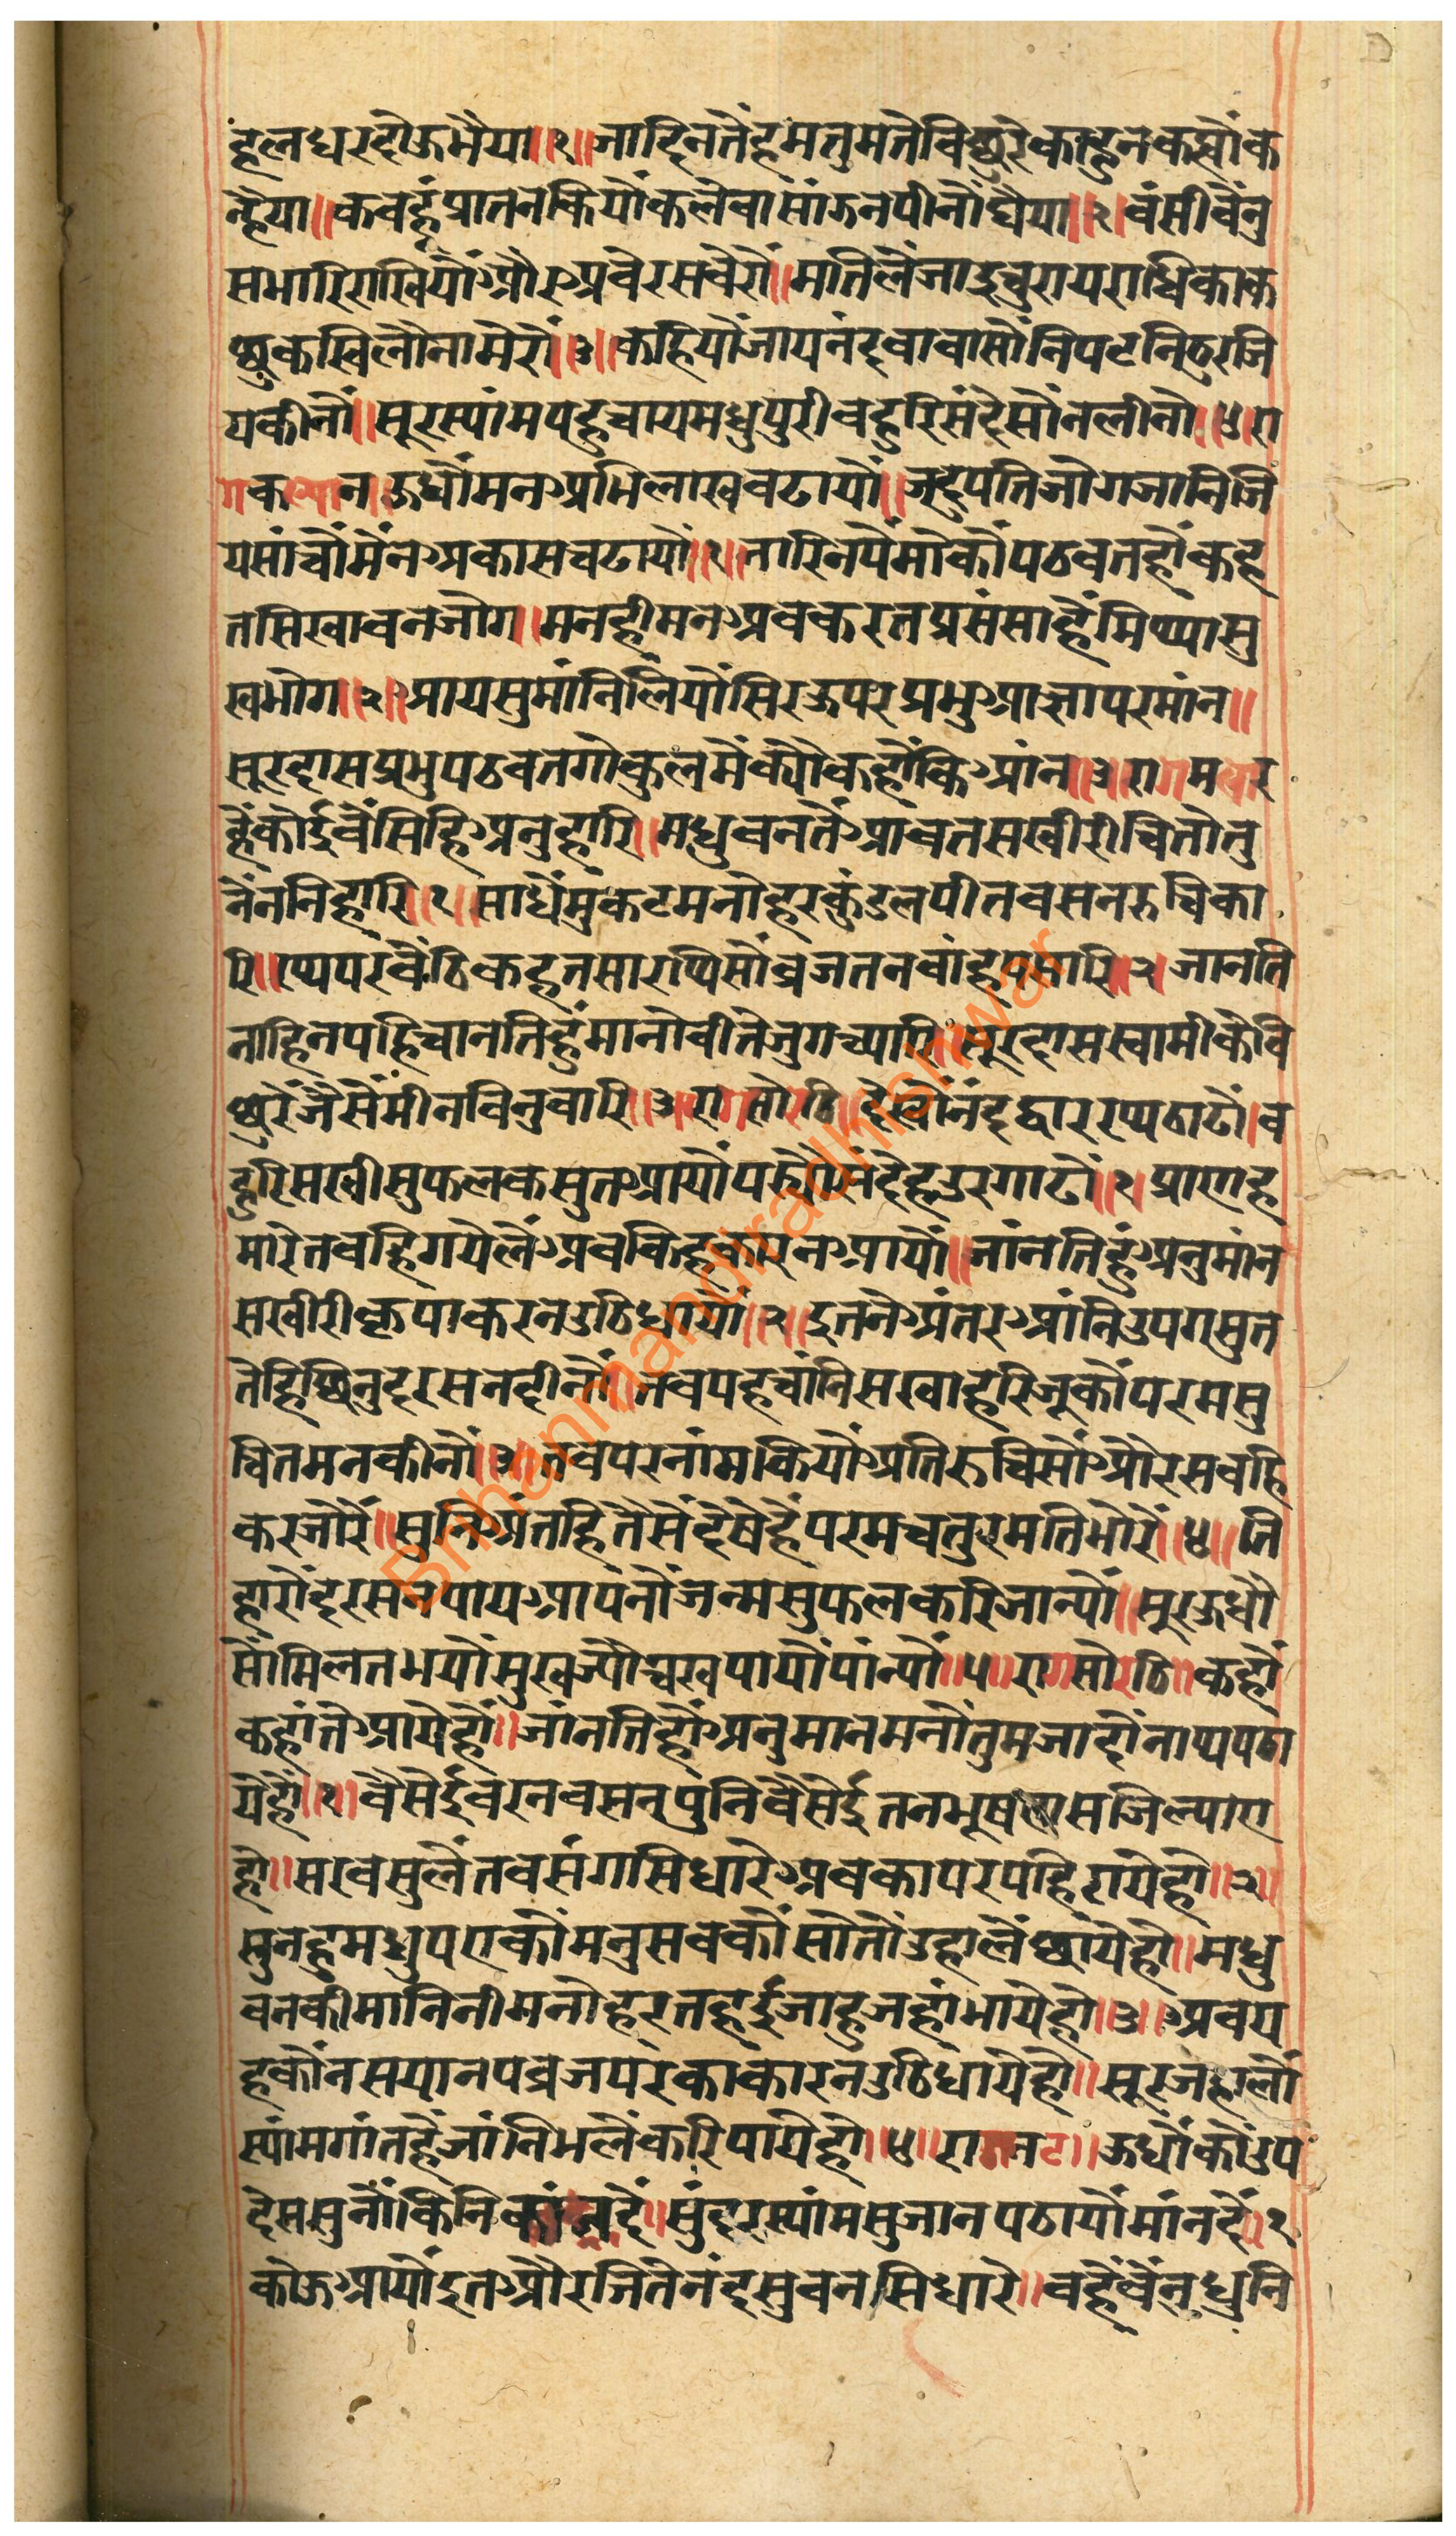 हलधरदोऊभैया॥१॥जादिनतेंहमतुमतेविछुरेकाहुनकह्योंक
न्हैया॥कबहूंप्रातनकियोंकलेवासांऊनपीनोंघैया॥२॥वंसीवेंनु
सभारिराखियोंऔरअवेरसवेरों॥मतिलेंजाइचुरायराधिकाक
छुकखिलौनामेरों॥३॥कहियोंजायनंदबाबासोंनिपटनिठुरजि
यकीनों॥सूरस्यांमपहुचायमधुपुरीबहुरिसंदेसोंनलीनों॥४॥रा
गकल्यान॥ऊधोंमनअभिलाखबढायों॥जदुपतिजोगजानिजि
यसांचोंमेंनअकासचढायों॥१॥नारिनपेंमोकोंपठवतहोंकह
तसिखावनजोग॥मनहीमनअबकरतप्रसंसाहेंमिथ्यासु
खभोग॥२॥आयसुमांनिलियोंसिरऊपरप्रभुआज्ञापरमांन॥
सूरदासप्रभुपठवतगोकुलमेंक्योंकहोंकिआंन॥३॥रागमलार
हेंकोईवेंसिहिअनुहारि॥मधुबनतेंआवतसखीरीचितोतु
नेंननिहारि॥१॥माथेंमुकटमनोहरकुंडलपीतवसनरुचिका
रि॥रथपरबेंठिकहतसारथिसोंब्रजतनबांहपसारि॥२॥जानति
नाहिनपहिचानतिहुंमानोबीतेजुगच्यारि॥सूरदासस्वामीकेवि
छुरेंजेंसेंमीनबिनुवारि॥३॥रागसोरठि॥देखोंनंदद्वाररथठाढों॥ब
हुरिसखीसुफलकसुतआयोंपर्योंसंदेहउरगाढों॥१॥प्राणह
मारेतबहिगयेलेंअबकिहकारनआयों॥जांनतिहुंअनुमांन
सखीरीकृपाकरनउठिधायों॥२॥इतनेअंतरआंनिउपगसुत
तेहिछिनुदरसनदीनों॥तबपहचांनिसखाहरिजूकोंपरमसु
चितमनकीनों॥३॥तबपरनांमकियोंअतिरुचिसोंऔरसबहि
करजोरें॥सुनिअंतहितेंसेंदेषेहेंपरमचतुरमतिभोरें॥४॥ति
हारोंदरसनपायआपनोंजन्मसुफलकरिजान्यों॥सूरऊधौ
सोंमिलतभयोंसुखज्योंचखपायोंपांन्यों॥५॥रागसोरठि॥कहों
कहांतेआयेहों॥जांनतिहोंअनुमानमनोंतुमजादोंनाथपठा
येहों॥१॥वैसेईवरनवसनपुनिवैसेईतनभूषणसजिल्याए
हो॥सरबसुलेंतबसंगसिधारेअबकापरपहिरायेहो॥२॥
सुनहुमधुपएकोंमनुसबकोंसोतोंउहांलेंछायेहो॥मधु
बनकीमानिनीमनोहरतहईजाहुजहांभायेहो॥३॥अबय
हकोंनसयानपब्रजपरकाकारनउठिधायेहो॥सूरजहालों
स्यांमगांतहेंजांनिभलेंकरिपायेहो॥४॥रागनट॥ऊधौंकोंउप
देससुनोंकिनिकांनदें॥सुंदरस्यांमसुजानपठायोंमांनदें॥१॥
कोऊआयोंइतओरजितेंनंदसुवनसिधारे॥वहेंवेंनुधुनि